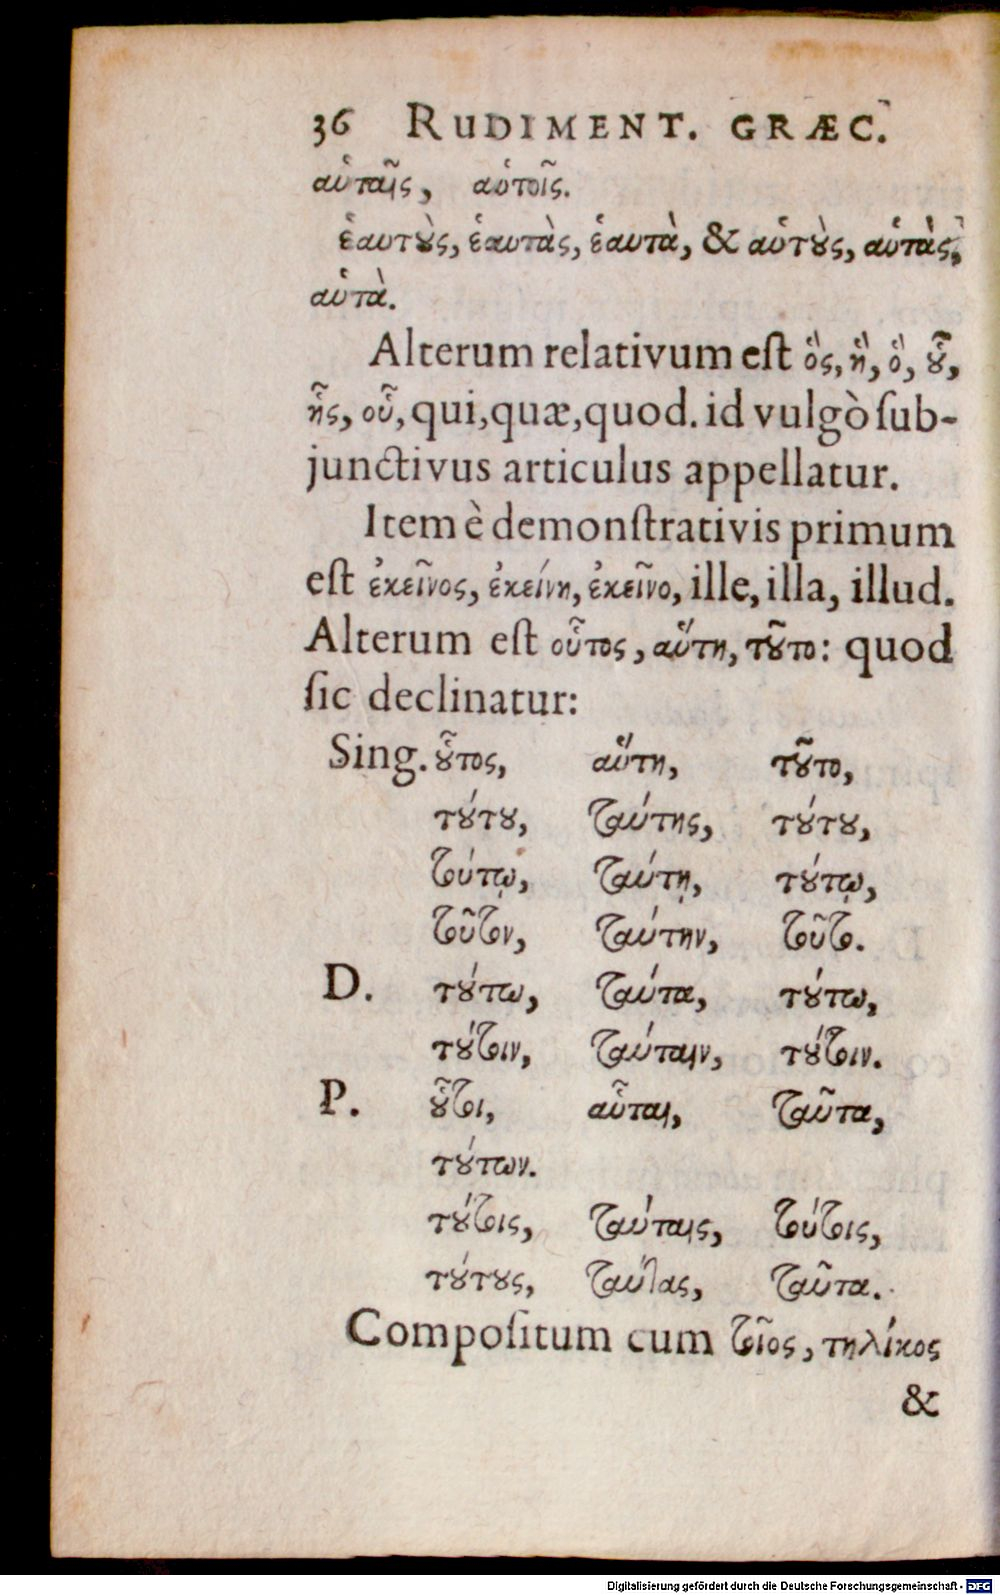 36 RUDIMENT. GRÆC.
αὑταῖς, αὑτοῖς.
ἑαυτοὺς, ἑαυτὰς, ἑαυτὰ, & αὑτοὺς, αὑτὰς,
αὑτὰ.
Alterum relativum eſt ὃς, ἣ, ὃ, οὗ,
ἧς, οὗ, qui, quæ, quod. id vulgò ſub-
junctivus articulus appellatur.
Item è demonſtrativis primum
eſt ἐκεῖνος, ἐκείνη, ἐκεῖνο, ille, illa, illud.
Alterum eſt οὗτος, αὕτη, τοῦτο: quod
ſic declinatur:
Sing. οὗτος, αὕτη, τοῦτο,
τούτου, ταύτης, τούτου,
τούτῳ, ταύτῃ, τούτῳ,
τοῦτον, ταύτην, τοῦτο.
D. τούτω, ταύτα, τούτω,
τούτοιν, ταύταιν, τούτοιν.
P. οὗτοι, αὗται, ταῦτα,
τούτων.
τούτοις, ταύταις, τούτοις,
τούτους, ταύτας, ταῦτα.
Compoſitum cum τοῖος, τηλίκος
&
Digitalisierung gefördert durch die Deutsche Forschungsgemeinschaft - DFG